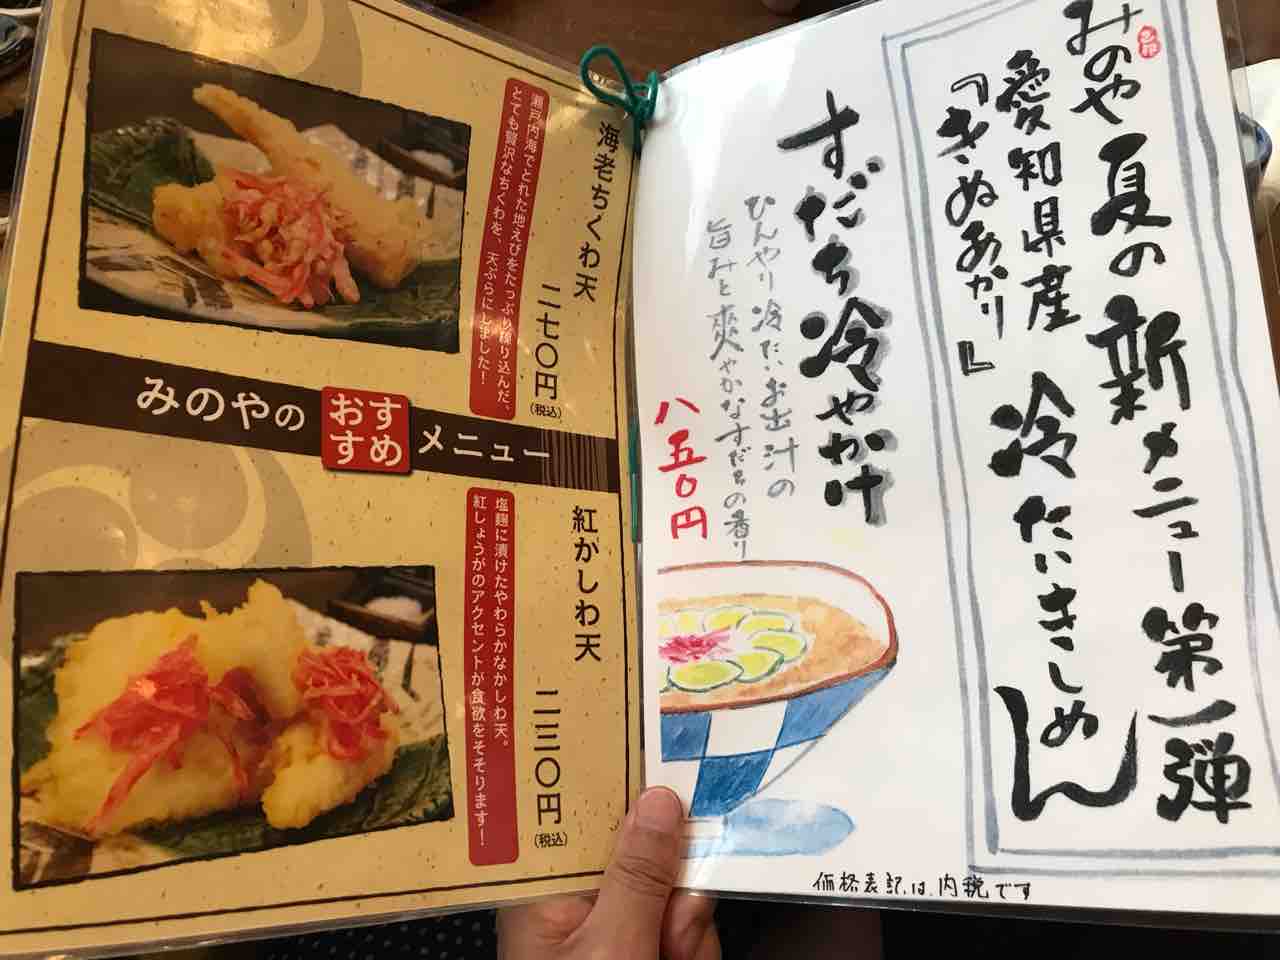 みのや夏の新メニュー第一弾
愛知県産
『きぬあかり』
冷たいきしめん
すだち冷やかけ
ひんやり冷たいお出汁の
旨みと爽やかなすだちの香り
八五〇円
価格表記は、内税です
海老ちくわ天
二七〇円
(税込)
瀬戸内海でとれた地えびをたっぷり練り込んだ、
とても贅沢なちくわを、天ぷらにしました!
みのやの
おす
すめ
メニュー
紅かしわ天
二三〇円
(税込)
塩麹に漬けたやわらかなかしわ天。
紅しょうがのアクセントが食欲をそそります!